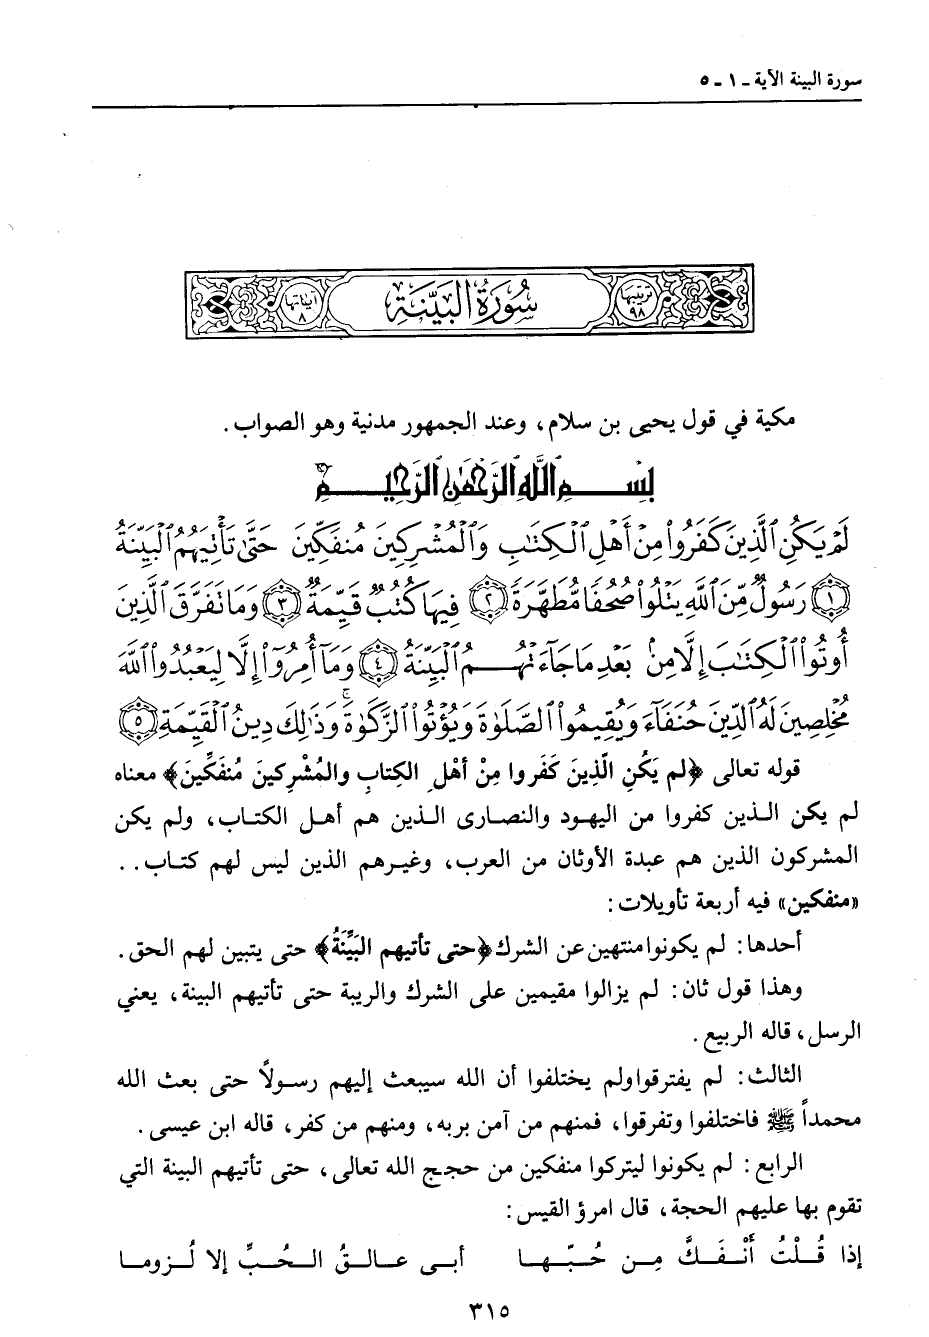 سورة البينة الآية ـ ١ ـ ٥
ترتيبها ٩٨ سُورَةُ الْبَيِّنَةِ آياتها ٨
مكية في قول يحيى بن سلام، وعند الجمهور مدنية وهو الصواب.
بِسْمِ اللَّهِ الرَّحْمَٰنِ الرَّحِيمِ
لَمْ يَكُنِ الَّذِينَ كَفَرُوا مِنْ أَهْلِ الْكِتَابِ وَالْمُشْرِكِينَ مُنفَكِّينَ حَتَّىٰ تَأْتِيَهُمُ الْبَيِّنَةُ
﴿١﴾ رَسُولٌ مِّنَ اللَّهِ يَتْلُوا صُحُفًا مُّطَهَّرَةً ﴿٢﴾ فِيهَا كُتُبٌ قَيِّمَةٌ ﴿٣﴾ وَمَا تَفَرَّقَ الَّذِينَ
أُوتُوا الْكِتَابَ إِلَّا مِنْ بَعْدِ مَا جَاءَتْهُمُ الْبَيِّنَةُ ﴿٤﴾ وَمَا أُمِرُوا إِلَّا لِيَعْبُدُوا اللَّهَ
مُخْلِصِينَ لَهُ الدِّينَ حُنَفَاءَ وَيُقِيمُوا الصَّلَوٰةَ وَيُؤْتُوا الزَّكَوٰةَ ۚ وَذَٰلِكَ دِينُ الْقَيِّمَةِ ﴿٥﴾
قوله تعالى ﴿لم يَكُنِ الّذِينَ كَفَروا مِنْ أهْلِ الكِتابِ والمُشْرِكينَ مُنفَكِّينَ﴾ معناه
لم يكن الذين كفروا من اليهود والنصارى الذين هم أهل الكتاب، ولم يكن
المشركون الذين هم عبدة الأوثان من العرب، وغيرهم الذين ليس لهم كتاب..
«منفكين» فيه أربعة تأويلات:
أحدها: لم يكونوا منتهين عن الشرك ﴿حتى تأتيهم البَيِّنَةُ﴾ حتى يتبين لهم الحق.
وهذا قول ثان: لم يزالوا مقيمين على الشرك والريبة حتى تأتيهم البينة، يعني
الرسل، قاله الربيع.
الثالث: لم يفترقوا ولم يختلفوا أن الله سيبعث إليهم رسولاً حتى بعث الله
محمداً ﷺ فاختلفوا وتفرقوا، فمنهم من آمن بربه، ومنهم من كفر، قاله ابن عيسى.
الرابع: لم يكونوا ليتركوا منفكين من حجج الله تعالى، حتى تأتيهم البينة التي
تقوم بها عليهم الحجة، قال امرؤ القيس:
إذا قُلْتُ أَنْفَكَّ مِن حُبّها أبى عالقُ الحُبِّ إلا لُزوما
٣١٥